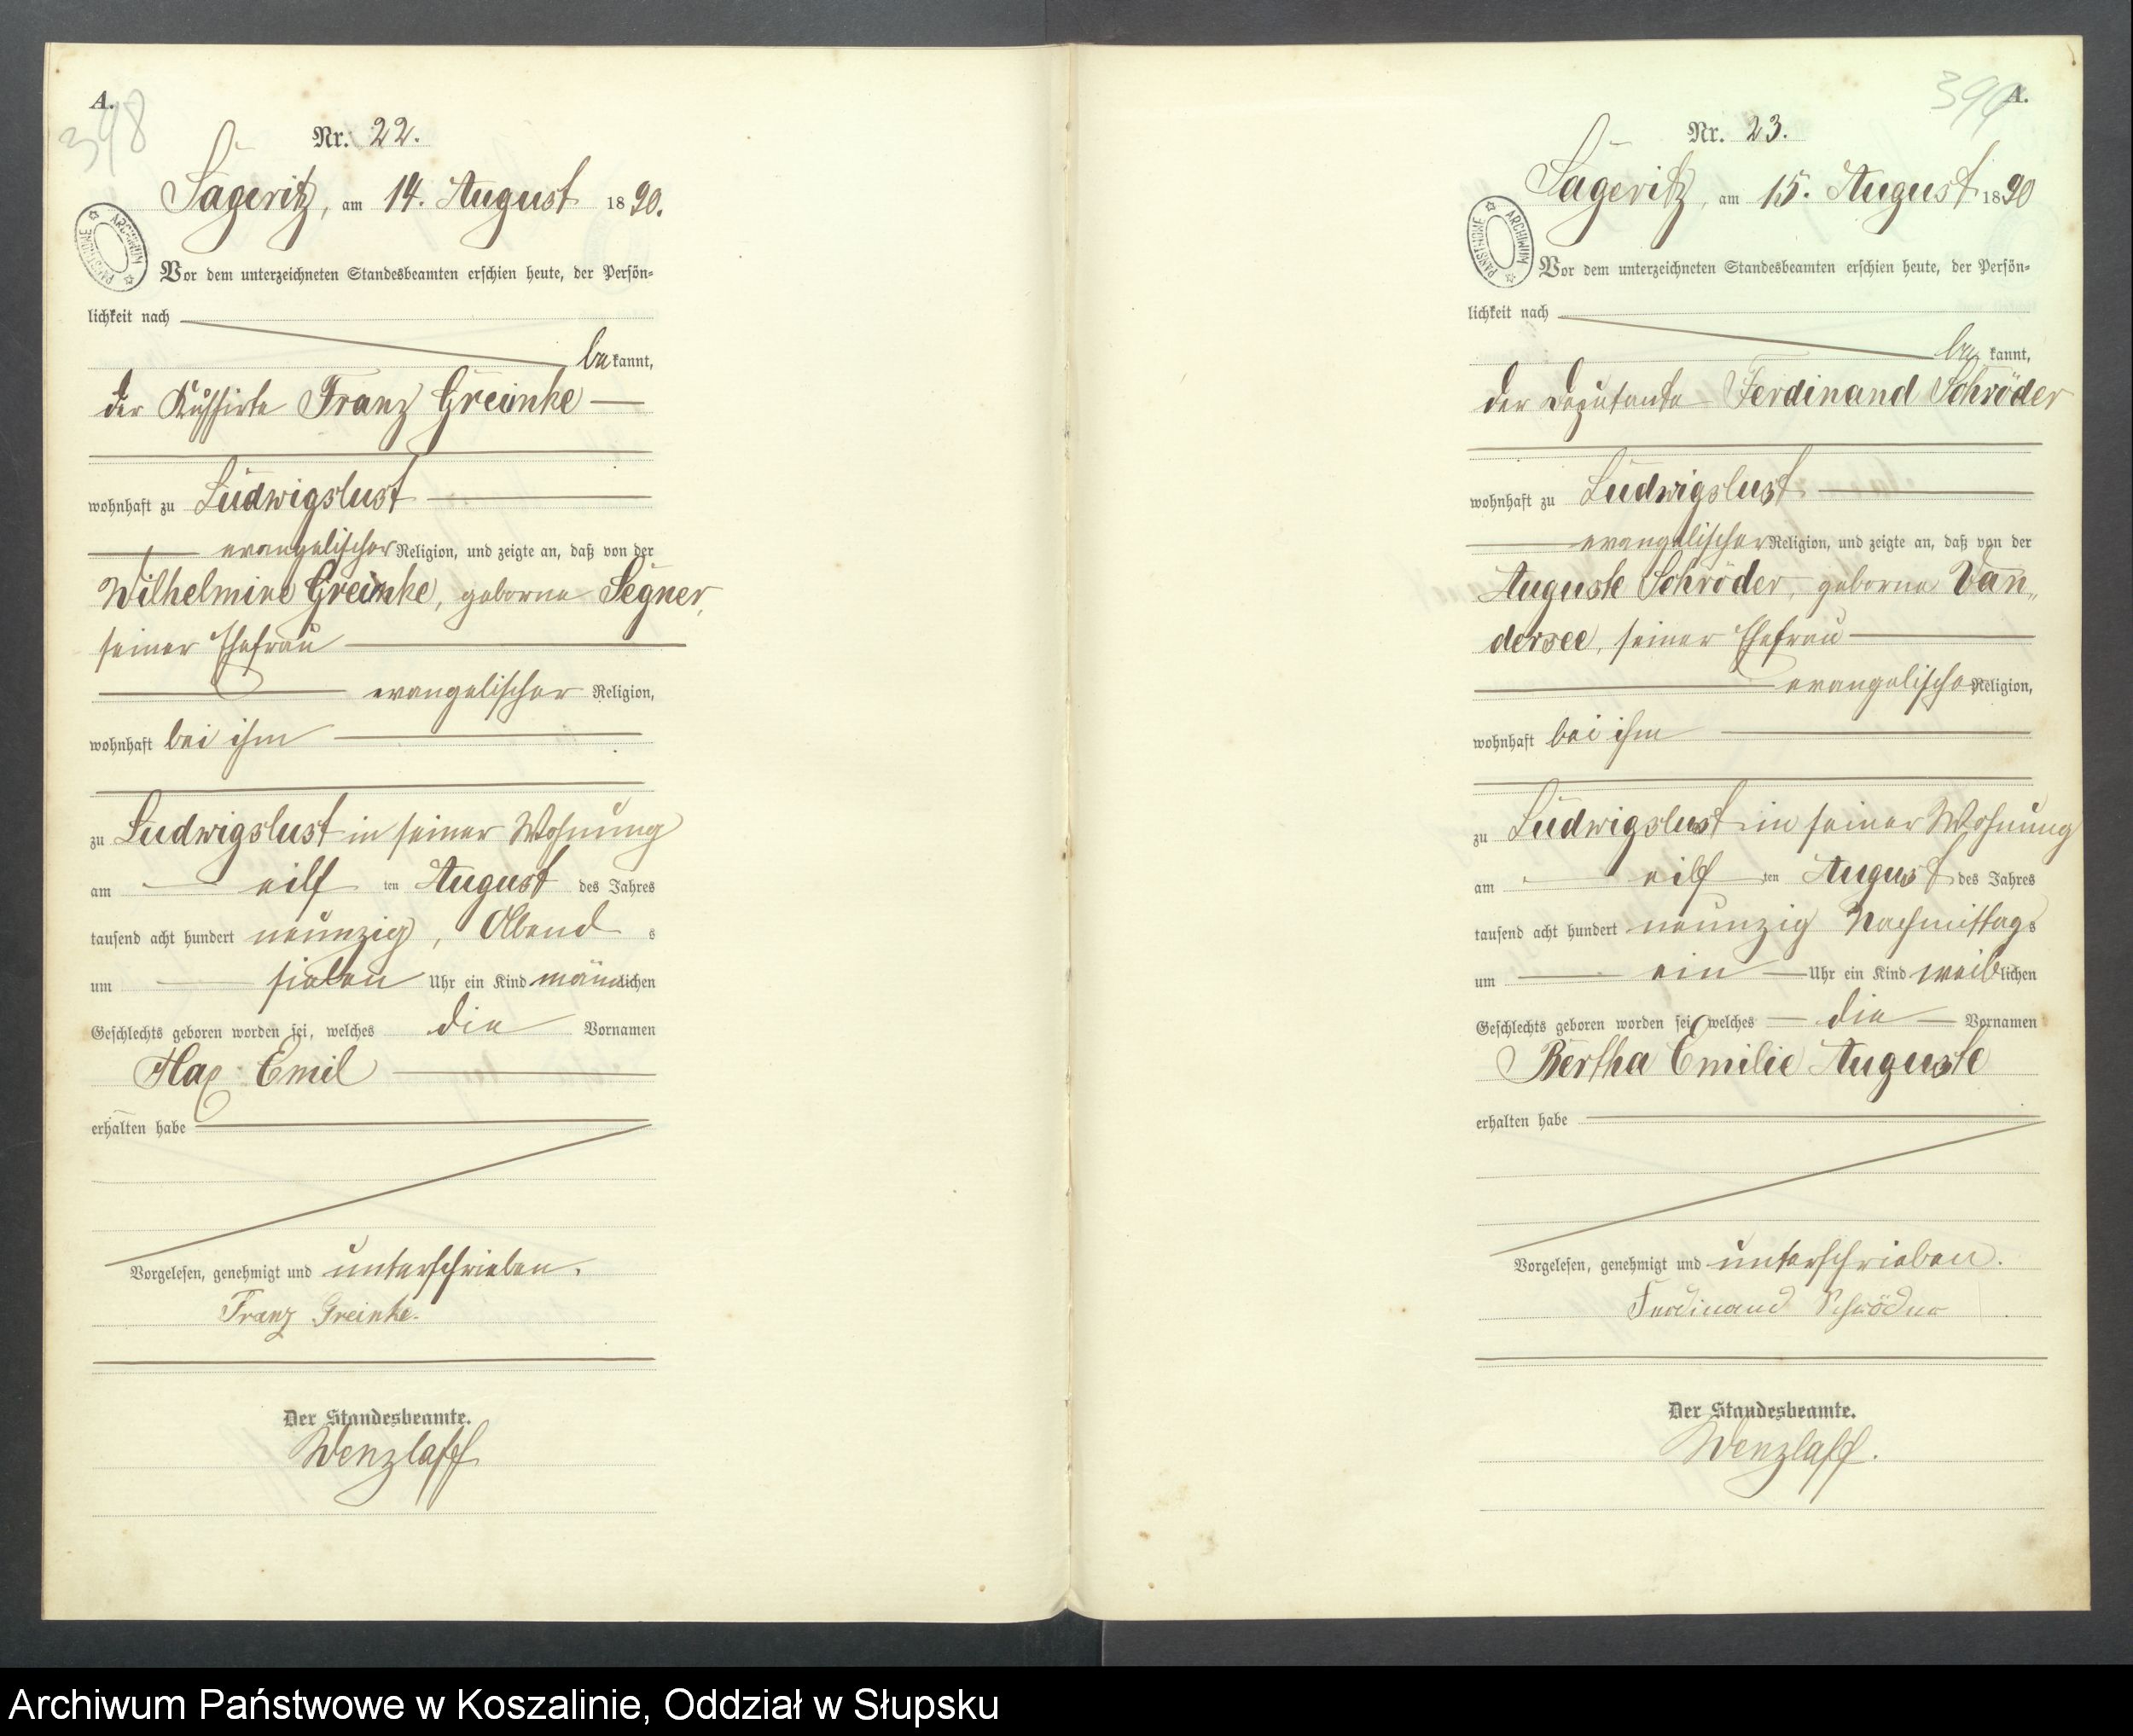 A.
398
Nr. 22.
Sageritz, am 14. August 1890.
ARCHIWUM PAŃSTWOWE
Vor dem unterzeichneten Standesbeamten erschien heute, der Persön=
lichkeit nach
bekannt,
der Kuhhirte Franz Greinke
wohnhaft zu Ludwigslust
evangelischer Religion, und zeigte an, daß von der
Wilhelmine Greinke, geborne Segner,
seiner Ehefrau
evangelischer Religion,
wohnhaft bei ihm
zu Ludwigslust in seiner Wohnung
am eilf ten August des Jahres
tausend acht hundert neunzig, Abends
um sieben Uhr ein Kind männlichen
Geschlechts geboren worden sei, welches die Vornamen
Max Emil
erhalten habe
Vorgelesen, genehmigt und unterschrieben.
Franz Greinke.
Der Standesbeamte.
Wenzlaff
399
A.
Nr. 23.
Sageritz, am 15. August 1890
ARCHIWUM PAŃSTWOWE
Vor dem unterzeichneten Standesbeamten erschien heute, der Persön=
lichkeit nach
bekannt,
der Deputante Ferdinand Schröder
wohnhaft zu Ludwigslust
evangelischer Religion, und zeigte an, daß von der
Auguste Schröder, geborne Van„
dersee, seiner Ehefrau
evangelischer Religion,
wohnhaft bei ihm
zu Ludwigslust in seiner Wohnung
am eilf ten August des Jahres
tausend acht hundert neunzig Nachmittags
um ein Uhr ein Kind weiblichen
Geschlechts geboren worden sei, welches die Vornamen
Bertha Emilie Auguste
erhalten habe
Vorgelesen, genehmigt und unterschrieben.
Ferdinand Schröder
Der Standesbeamte.
Wenzlaff.
Archiwum Państwowe w Koszalinie, Oddział w Słupsku